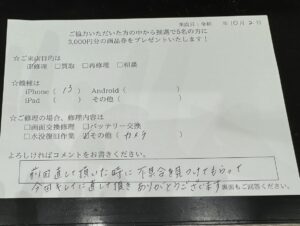 年10月2日
ご協力いただいた方の中から抽選で5名の方に
3,000円分の商品券をプレゼントいたします！
☆ご来店目的は
☑修理 □買取 □再修理 □相談
☆機種は
iPhone（ 13 ） Android（ ）
iPad（ ） その他（ ）
☆ご修理の場合、修理内容は
□画面交換修理 □バッテリー交換
□水没復旧作業 ☑その他（カメラ ）
よろしければコメントをお書きください。
前回直して頂いた時に不具合を見つけてもらって
今回キレイに直して頂きありがとうございます
裏面もご回答ください。